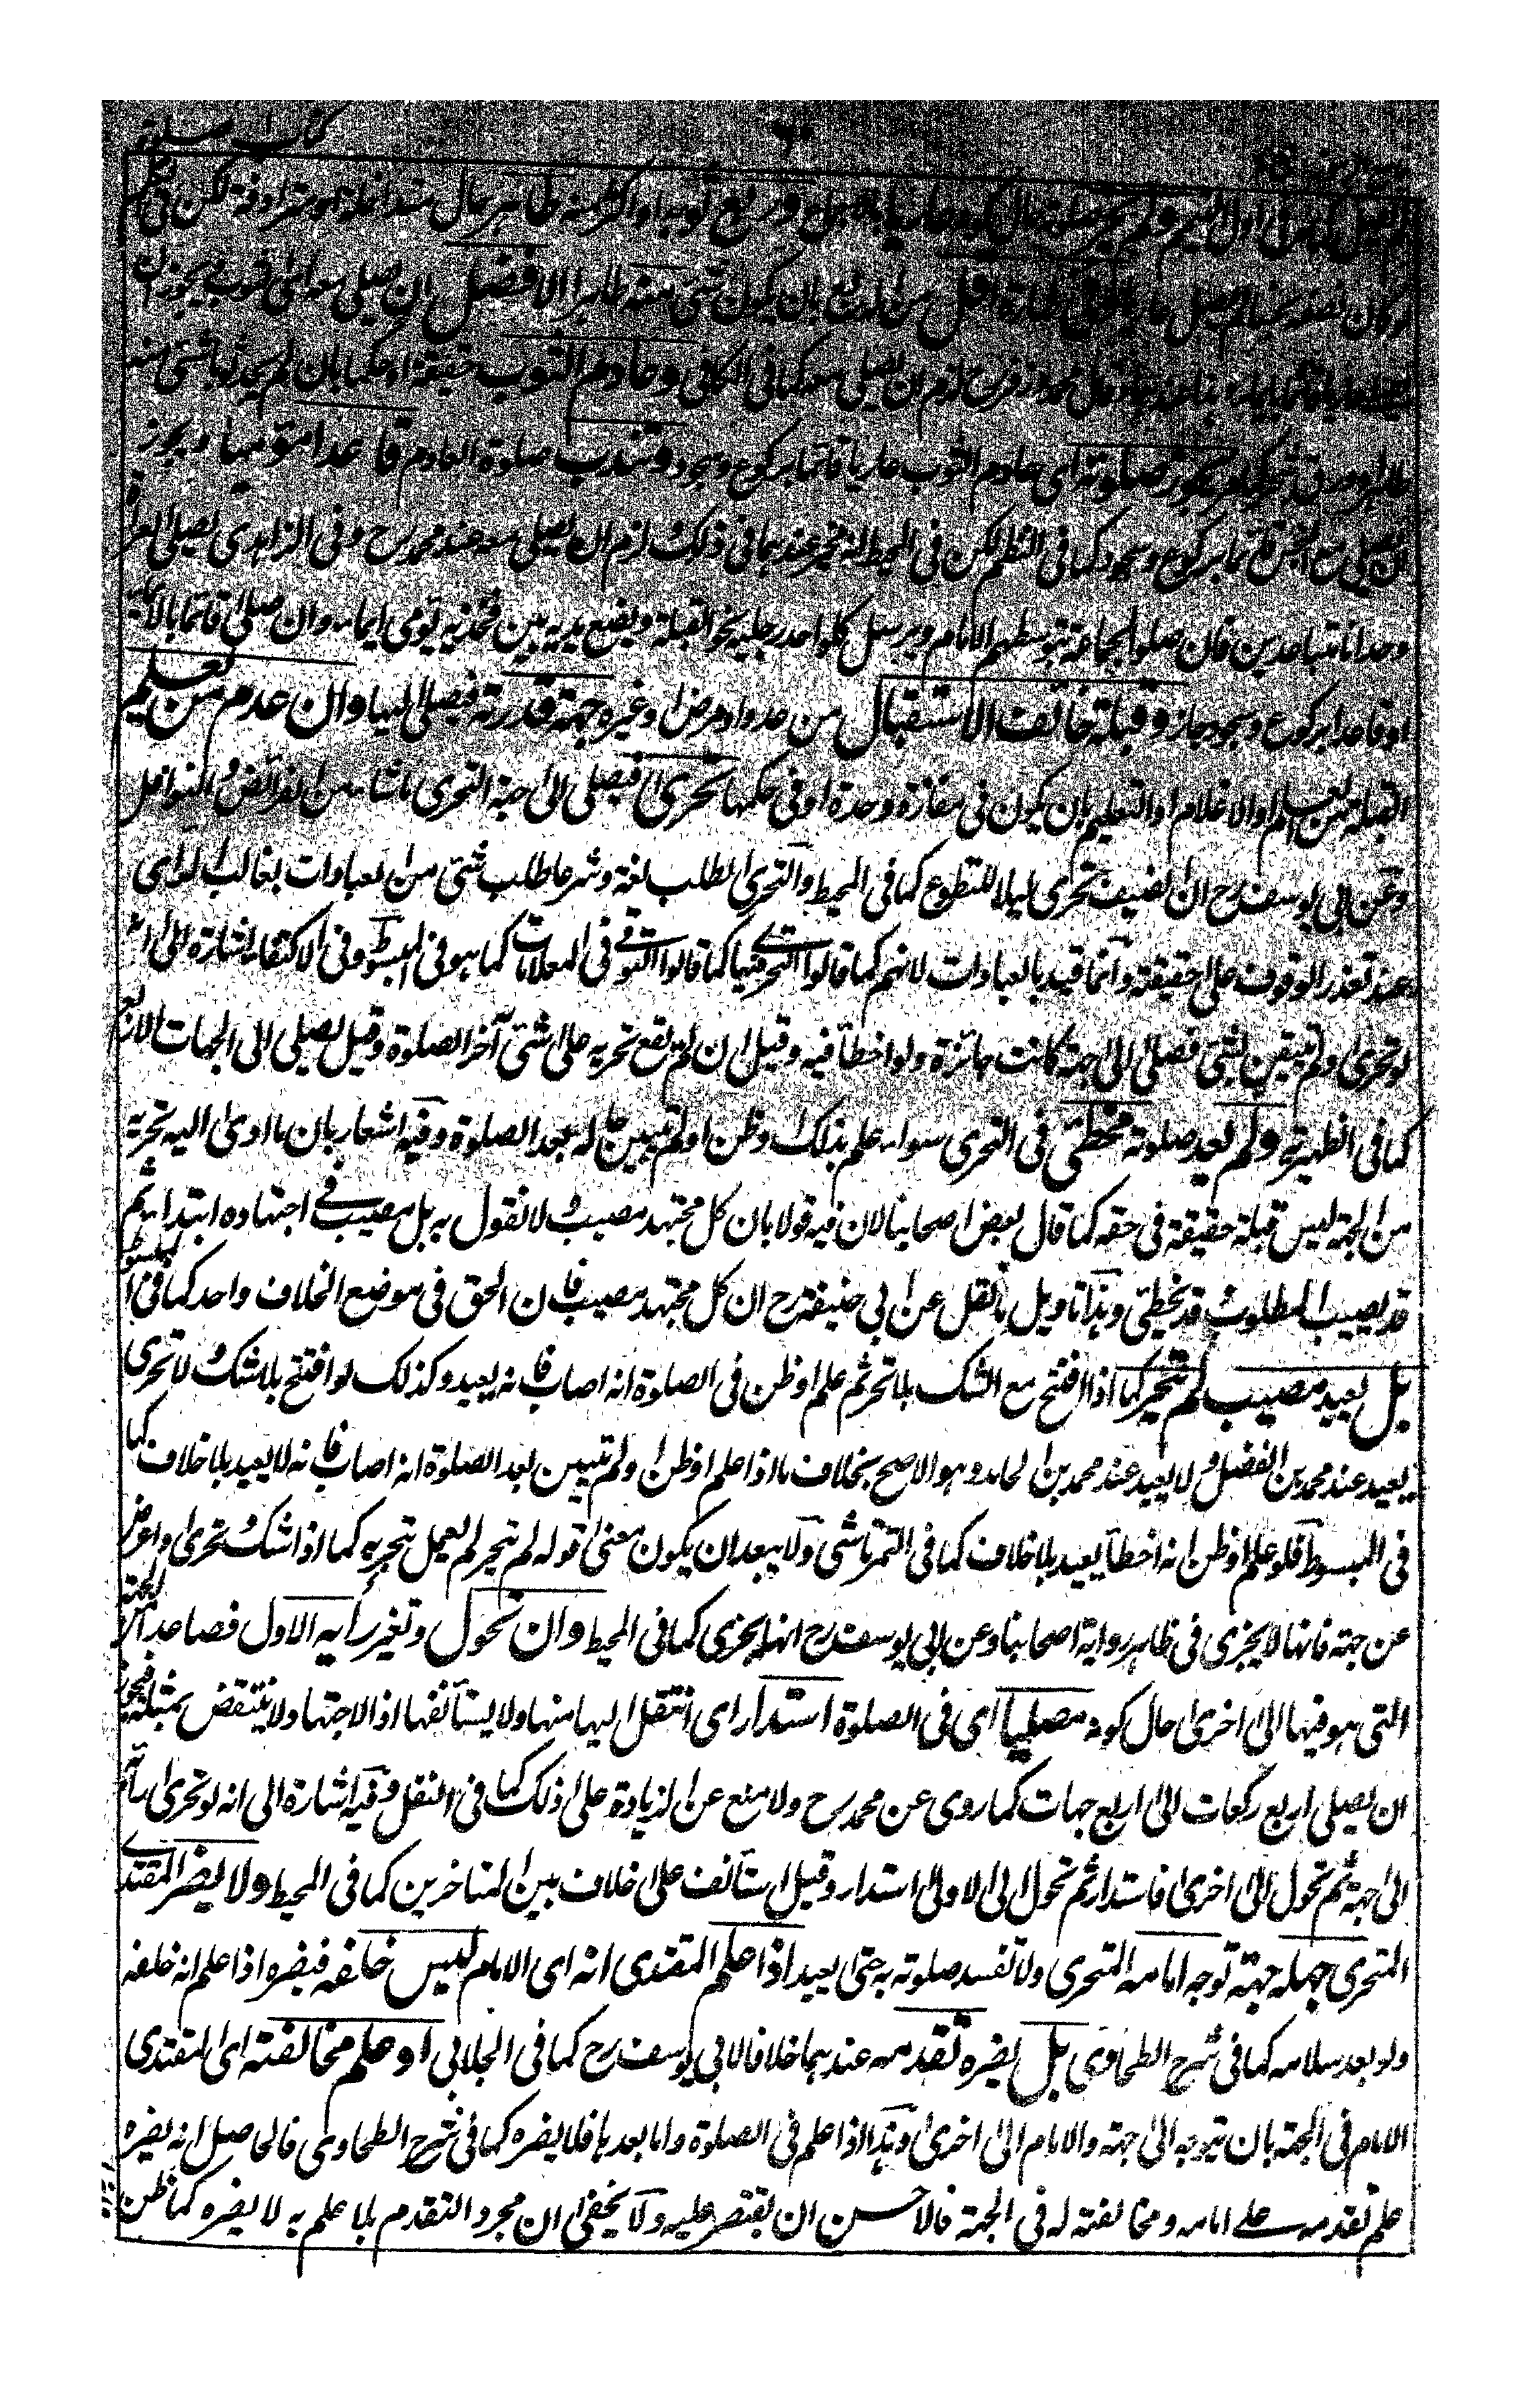 كتاب الصلوة
ولم يجز صلوته حال كونه عاريا وربع ثوبه او اكثر منه طاهر لكن في
الافضل ان يصلي معه
قال محمد وزفر رح لزم ان يصلي معه كما في الكافي وعادم الثوب حقيقة او حكما بان لم يجد ثوبا
يجوز صلوته اي عادم الثوب عاريا قائما بركوع وسجود وتندب صلوة العادم قاعدا موميا ويجوز
بركوع وسجود كما في النظم لكن في المحيط انه مخير عندهما في ذلك ولزم ان يصلي معه عند محمد رح وفي الزاهدي يصلي العراة
وحدانا متباعدين فان صلوا بجماعة يتوسطهم الامام ويرسل كل واحد رجليه نحو القبلة ويضع يديه بين فخذيه يومي ايماء وان صلى قائما بالايماء
او قاعدا بركوع وسجود جاز وقبلة خائف الاستقبال من عدو او مرض او غيره جهة قدرته فيصلي اليها وان عدم من يعلم
القبلة من العلم او الاعلام او التعليم بان يكون في مفازة وحده او في حكمها تحرى فيصلي الى جهة التحري ما شاء من الفرائض والنوافل
وعن ابي يوسف رح ان الضيف تحرى ليلا للتطوع كما في المحيط والتحري الطلب لغة وشرعا طلب شئ من العبادات بغالب الراى
عند تعذر الوقوف على حقيقة وانما قيد بالعبادات لانهم كما قالوا التحري فيها كما قالوا التوخي في المعاملات كما هو في المبسوط وفي الاكتفاء اشارة الى انه
لو تحرى ولم يتيقن بشئ فصلى الى جهة كانت جائزة ولو اخطأ فيه وقيل ان لم تقع تحريه على شئ آخر الصلوة وقيل يصلي الى الجهات الاربع
كما في الظهيرية ولم يعد صلوته مخطئ في التحري سواء علم بذلك او ظن او لم يتبين حاله بعد الصلوة وفيه اشعار بان ما ادى اليه تحريه
من الجهة ليس قبلة حقيقة في حقه كما قال بعض اصحابنا لان فيه قولا بان كل مجتهد مصيب ولا نقول به بل مصيب في اجتهاده ابتداء ثم
قد يصيب المطلوب وقد يخطئ وهذا تاويل ما نقل عن ابي حنيفة رح ان كل مجتهد مصيب فان الحق في موضع الخلاف واحد كما في المبسوط
بل يعيد مصيب لم يتحر كما اذا افتتح مع الشك بلا تحر ثم علم او ظن في الصلوة انه اصاب فانه يعيد وكذلك لو افتتح بلا شك ولا تحرى
يعيد عند محمد بن الفضل ولا يعيد عند محمد بن الحامد وهو الاصح بخلاف ما اذا علم او ظن او لم يتبين بعد الصلوة انه اصاب فانه لا يعيد بلا خلاف كما
في المبسوط فلو علم او ظن انه اخطأ يعيد بلا خلاف كما في التمرتاشي ولا يبعد ان يكون معنى قوله لم يتحر لم يعمل بتحريه كما اذا شك وتحرى واعرض
عن جهته فانها لا يجزى في ظاهر رواية اصحابنا وعن ابي يوسف رح انها يجزى كما في المحيط وان تحول وتغير رأيه الاول فصاعدا الجهة
التى هو فيها الى اخرى حال كونه مصليا اى في الصلوة استدار اى انتقل اليها منها ولا يستأنفها اذ الاجتهاد لا ينتقض بمثله فيجوز
ان يصلي اربع ركعات الى اربع جهات كما روى عن محمد رح ولا منع عن الزيادة على ذلك كما في النقل وفيه اشارة الى انه لو تحرى رأيه
الى جهة ثم تحول الى اخرى فاستدار ثم تحول الى الاولى استدار وقيل استأنف على خلاف بين المتاخرين كما في المحيط ولا يضر المقتدى
المتحرى جهله جهة توجه امامه المتحرى ولا تفسد صلوته به حتى يعيد اذا علم المقتدى انه اى الامام ليس خلفه فيضره اذا علم انه خلفه
ولو بعد سلامه كما في شرح الطحاوى بل يضره تقدمه عندهما خلافا لابي يوسف رح كما في الجلابي او علم مخالفته اى المقتدى
الامام في الجهة بان يتوجه الى جهة والامام الى اخرى وهذا اذا علم في الصلوة واما بعدها فلا يضره كما في شرح الطحاوى فالحاصل انه يضره
علم تقدمه على امامه ومخالفته له في الجهة فالاحسن ان يقتصر عليه ولا يخفى ان مجرد التقدم بلا علم به لا يضره كما ظن